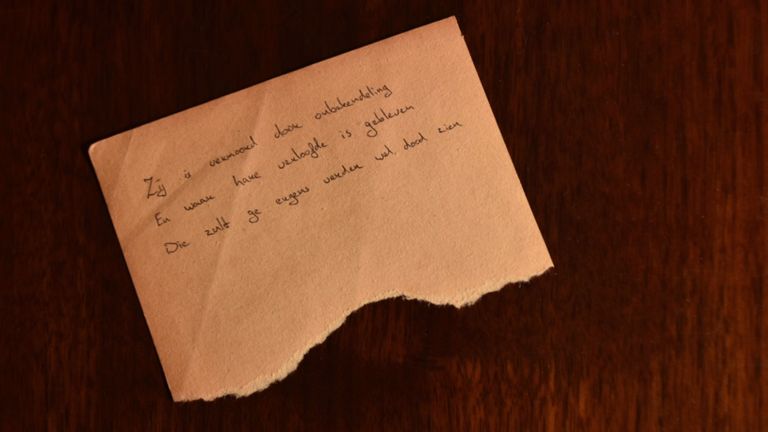 Zij is vermoord door onbekendeling
En waar hare verloofde is gebleven
Die zult ge ergens verden wel dood zien